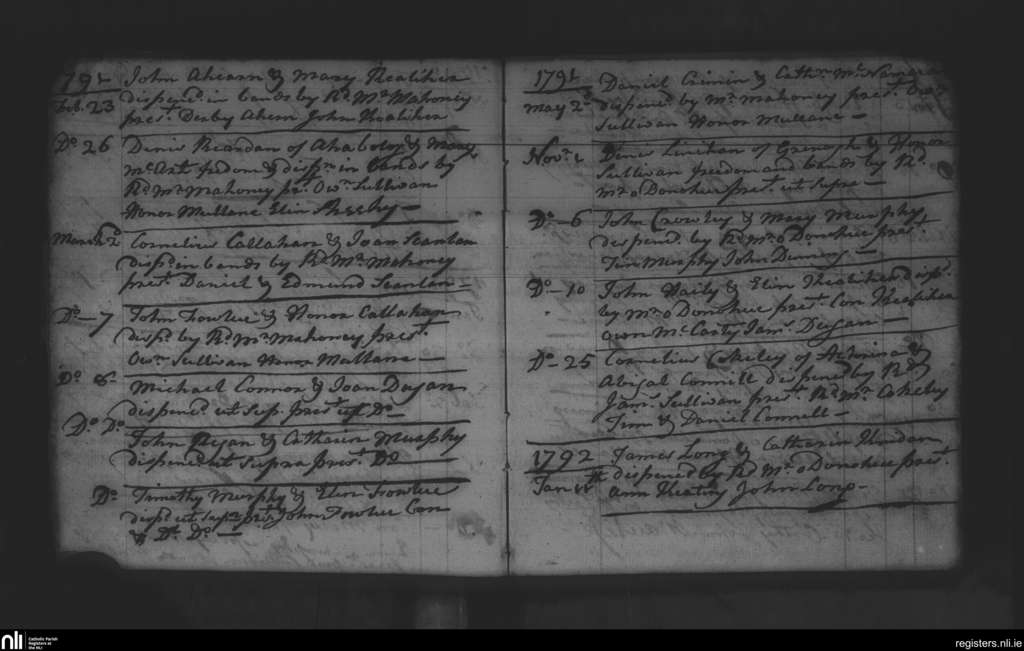 1791 John Ahearn & Mary Kealiher
Feb. 23 dispenc. in bands by Rd. Mr. Mahoney
prest. Derby Ahern John Kealiher
Do. 26 Denis Reardan of Ahabologe & Mary
McArt fredom & disp. in bands by
Rd. Mr. Mahoney pr. Own. Sullivan
Honor Mullane Elin Sheehy —
March 2d Cornelius Callahan & Joan Scanlan
disp. in bands by Rd. Mr. Mahoney
prest. Daniel & Edmund Scanlan —
Do. — 7 John Fowlue & Honor Callahan
disp. by Rd. Mr. Mahoney prest.
Own. Sullivan Honor Mullane —
Do. 8 Michael Connor & Joan Dugan
dispenc. ut sup. prest. ut Do. —
Do. Do. John Ryan & Catharin Murphy
dispenc. ut supra prest. Do —
Do. Timothy Murphy & Elin Fowlue
disp. ut sup. prest. John Fowlue Con
& Do. Do. —
1791 Daniel Crimin & Cathn. McNamara
May 2d dispenc. by Mr. Mahoney prest. Own.
Sullivan Honor Mullane —
Novr. 1 Denis Linihan of & Honor
Sullivan freedom and bands by Rd.
Mr. o Donohue prest. ut supra —
Do — 6 John Crowley & Mary Murphy
dispenc. by Rd. Mr. o Donohue prest.
Tim Murphy John —
Do — 10 John Haily & Elin Kealihar disp.
by Mr. o Donohue prest. Con Kealiher
own McCarty Jams. Dugan —
Do — 25 Cornelius Cokeley of &
Abigal Connell dispenc. by Rd.
Jams. Sullivan prest. Rd. Mr. Cokeley
Tim & Daniel Connell —
1792 James Long & Catharin Riordan
Jan dispenced by Rd Mr. o Donohue prest.
ann Keating John Long —
nli
Catholic Parish
Registers at
the NLI
registers.nli.ie